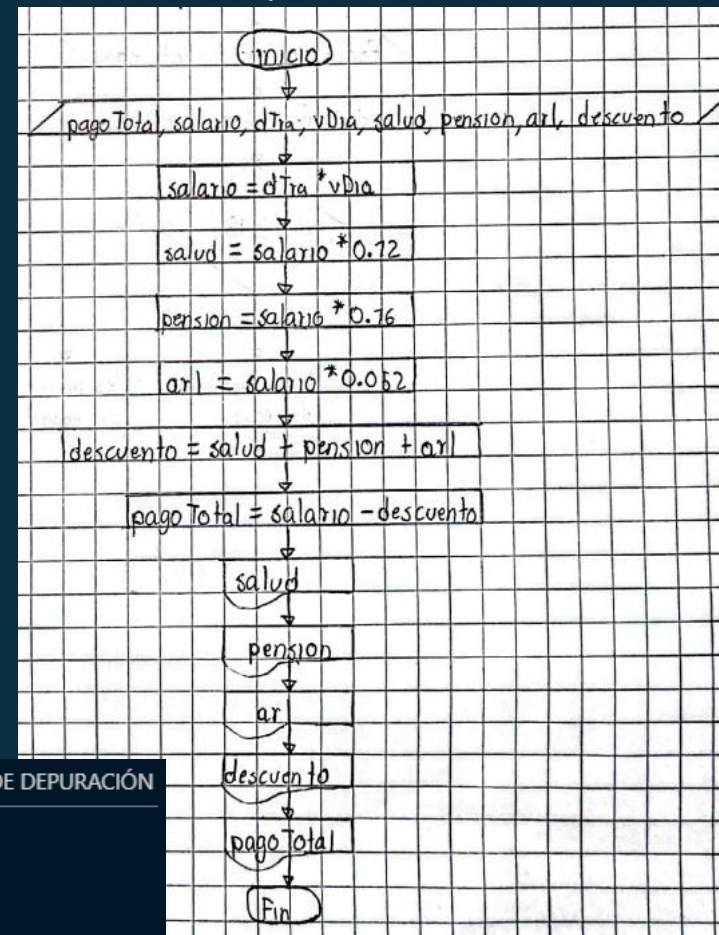 inicio
pagoTotal, salario, dTra, vDia, salud, pension, arl, descuento
salario = dTra * vDia
salud = salario * 0.12
pension = salario * 0.16
arl = salario * 0.052
descuento = salud + pension + arl
pagoTotal = salario - descuento
salud
pension
ar
descuento
pagoTotal
Fin
DE DEPURACIÓN